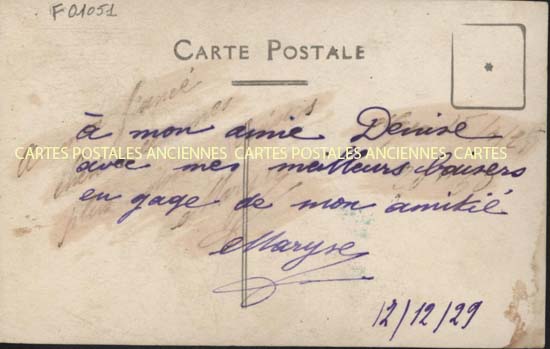 F 01051
CARTE POSTALE
à mon amie Denise
CARTES POSTALES ANCIENNES CARTES POSTALES ANCIENNES CARTES POSTALES ANCIENNES
avec mes meilleurs baisers
en gage de mon amitié
Maryse
12/12/29